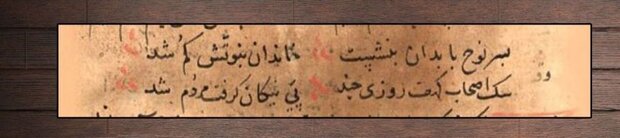 پسر نوح با بدان بنشست خاندان نبوتش گم شد
سگ اصحاب کهف روزی چند پی نیکان گرفت مردم شد